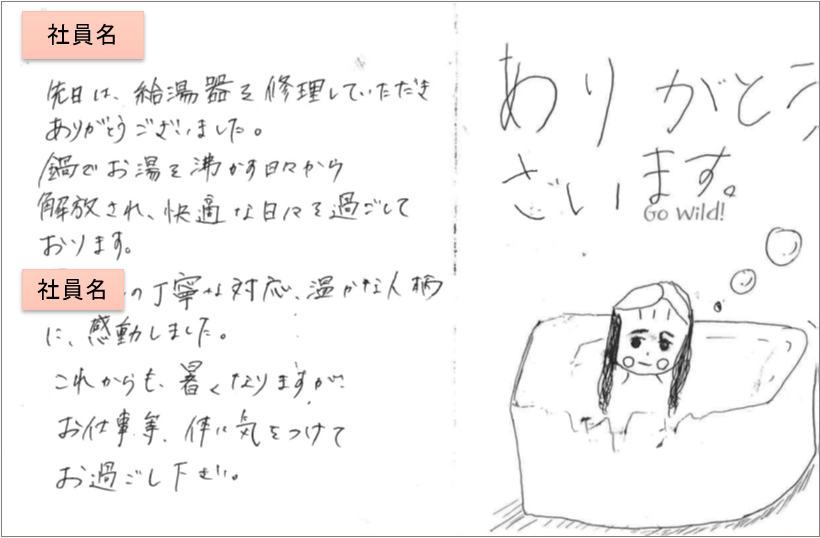 社員名
先日は、給湯器を修理していただき
ありがとうございました。
鍋でお湯を沸かす日々から
解放され、快適な日々を過ごして
おります。
社員名の丁寧な対応、温かな人柄
に、感動しました。
これからも、暑くなりますが、
お仕事等、体に気をつけて
お過ごし下さい。
ありがとう
ざいます。
Go Wild!